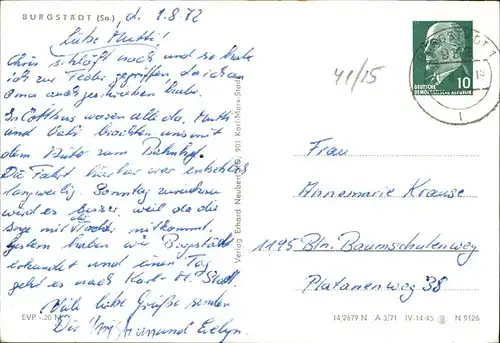 BURGSTÄDT (Sa.), d. 1.8.72
Liebe Mutti!
Chris schläft noch und so habe
ich zur Feder gegriffen, da ich an
Oma auch geschrieben habe.
In Cottbus waren alle da. Mutti
und Vati brachten uns mit
dem Auto zum Bahnhof.
Die Fahrt hierher war entsetzlich
langweilig. Sonntag zurückzu
wird es besser, weil da die
mit Tochter mitkommt.
Gestern haben wir Burgstädt
erkundet und einen Tag
geht es nach Karl-M. Stadt.
Viele liebe Grüße senden
Dir und Evelyn.
EVP -.20 M
Verlag Erhard Neubert KG, 901 Karl-Marx-Stadt
41/15
10
DEUTSCHE
DEMOKRATISCHE REPUBLIK
Frau
Annemarie Krause
1195 Bln. Baumschulenweg
Platanenweg 38
14/2679 N A 3/71 IV-14-45 N 9126